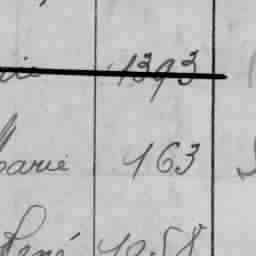 1393
Marie 163
René 1258